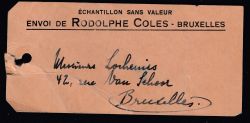 ÉCHANTILLON SANS VALEUR
ENVOI DE RODOLPHE COLES - BRUXELLES
Messieurs
42, rue Van Schoor
Bruxelles.